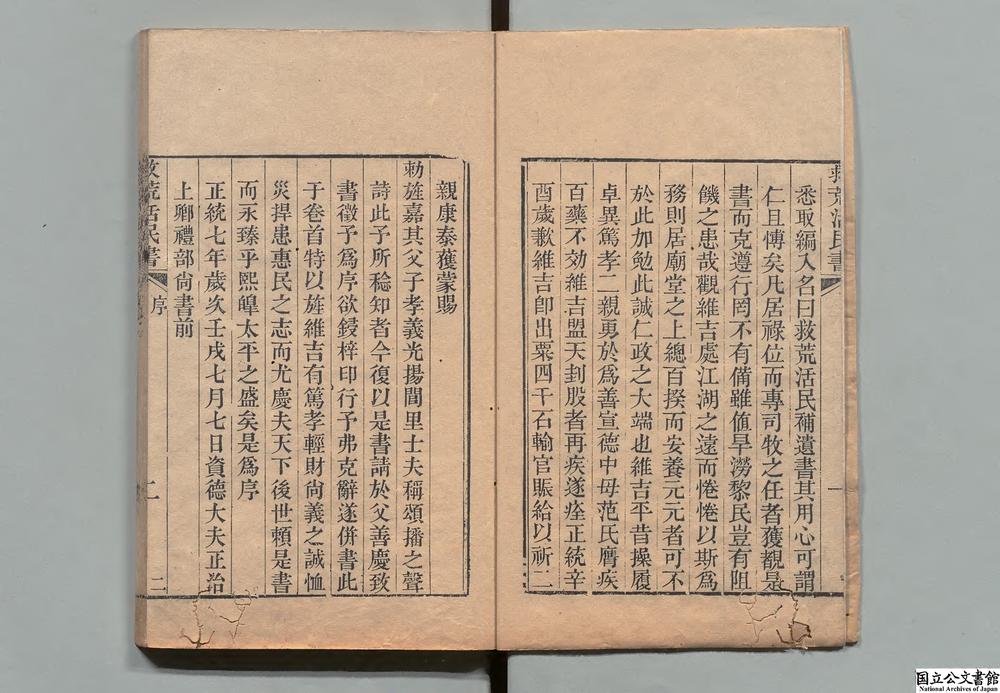 救荒活民書
悉取編入名曰救荒活民補遺書其用心可謂
仁且愽矣凡居祿位而專司牧之任者獲覩是
書而克遵行罔不有備雖値旱澇黎民豈有阻
饑之患哉觀維吉處江湖之遠而惓惓以斯爲
務則居廟堂之上總百揆而安養元元者可不
於此加勉此誠仁政之大端也維吉平昔操履
卓異篤孝二親更於爲善宣德中母范氏膺疾
百藥不効維吉盟天刲股者再疾遂痊正統辛
酉歲歉維吉卽出粟四千石輸官賑給以祈二
親康泰獲蒙賜
勅旌嘉其父子孝義光揚閭里士夫稱頌播之聲
詩此予所稔知者今復以是書請於父善慶致
書徵予爲序欲鋟梓印行予弗克辭遂併書此
于卷首特以旌維吉有篤孝輕財尙義之誠恤
災捍患惠民之志而尤慶夫天下後世賴是書
而永臻乎熙皞太平之盛矣是爲序
正統七年歲次壬戌七月七日資德大夫正治
上卿禮部尙書前
救荒活民書
序
二
二
国立公文書館
National Archives of Japan